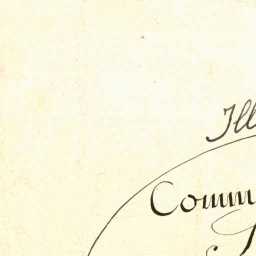 Ill
Comm